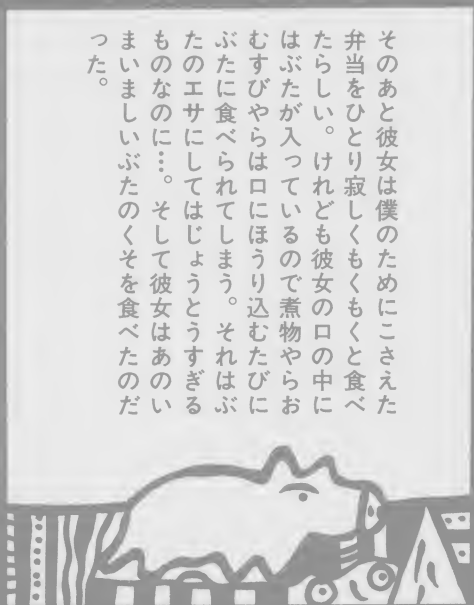 そのあと彼女は僕のためにこさえた
弁当をひとり寂しくもくもくと食べ
たらしい。けれども彼女の口の中に
はぶたが入っているので煮物やらお
むすびやらは口にほうり込むたびに
ぶたに食べられてしまう。それはぶ
たのエサにしてはじょうとうすぎる
ものなのに…。そして彼女はあのい
まいましいぶたのくそを食べたのだ
った。